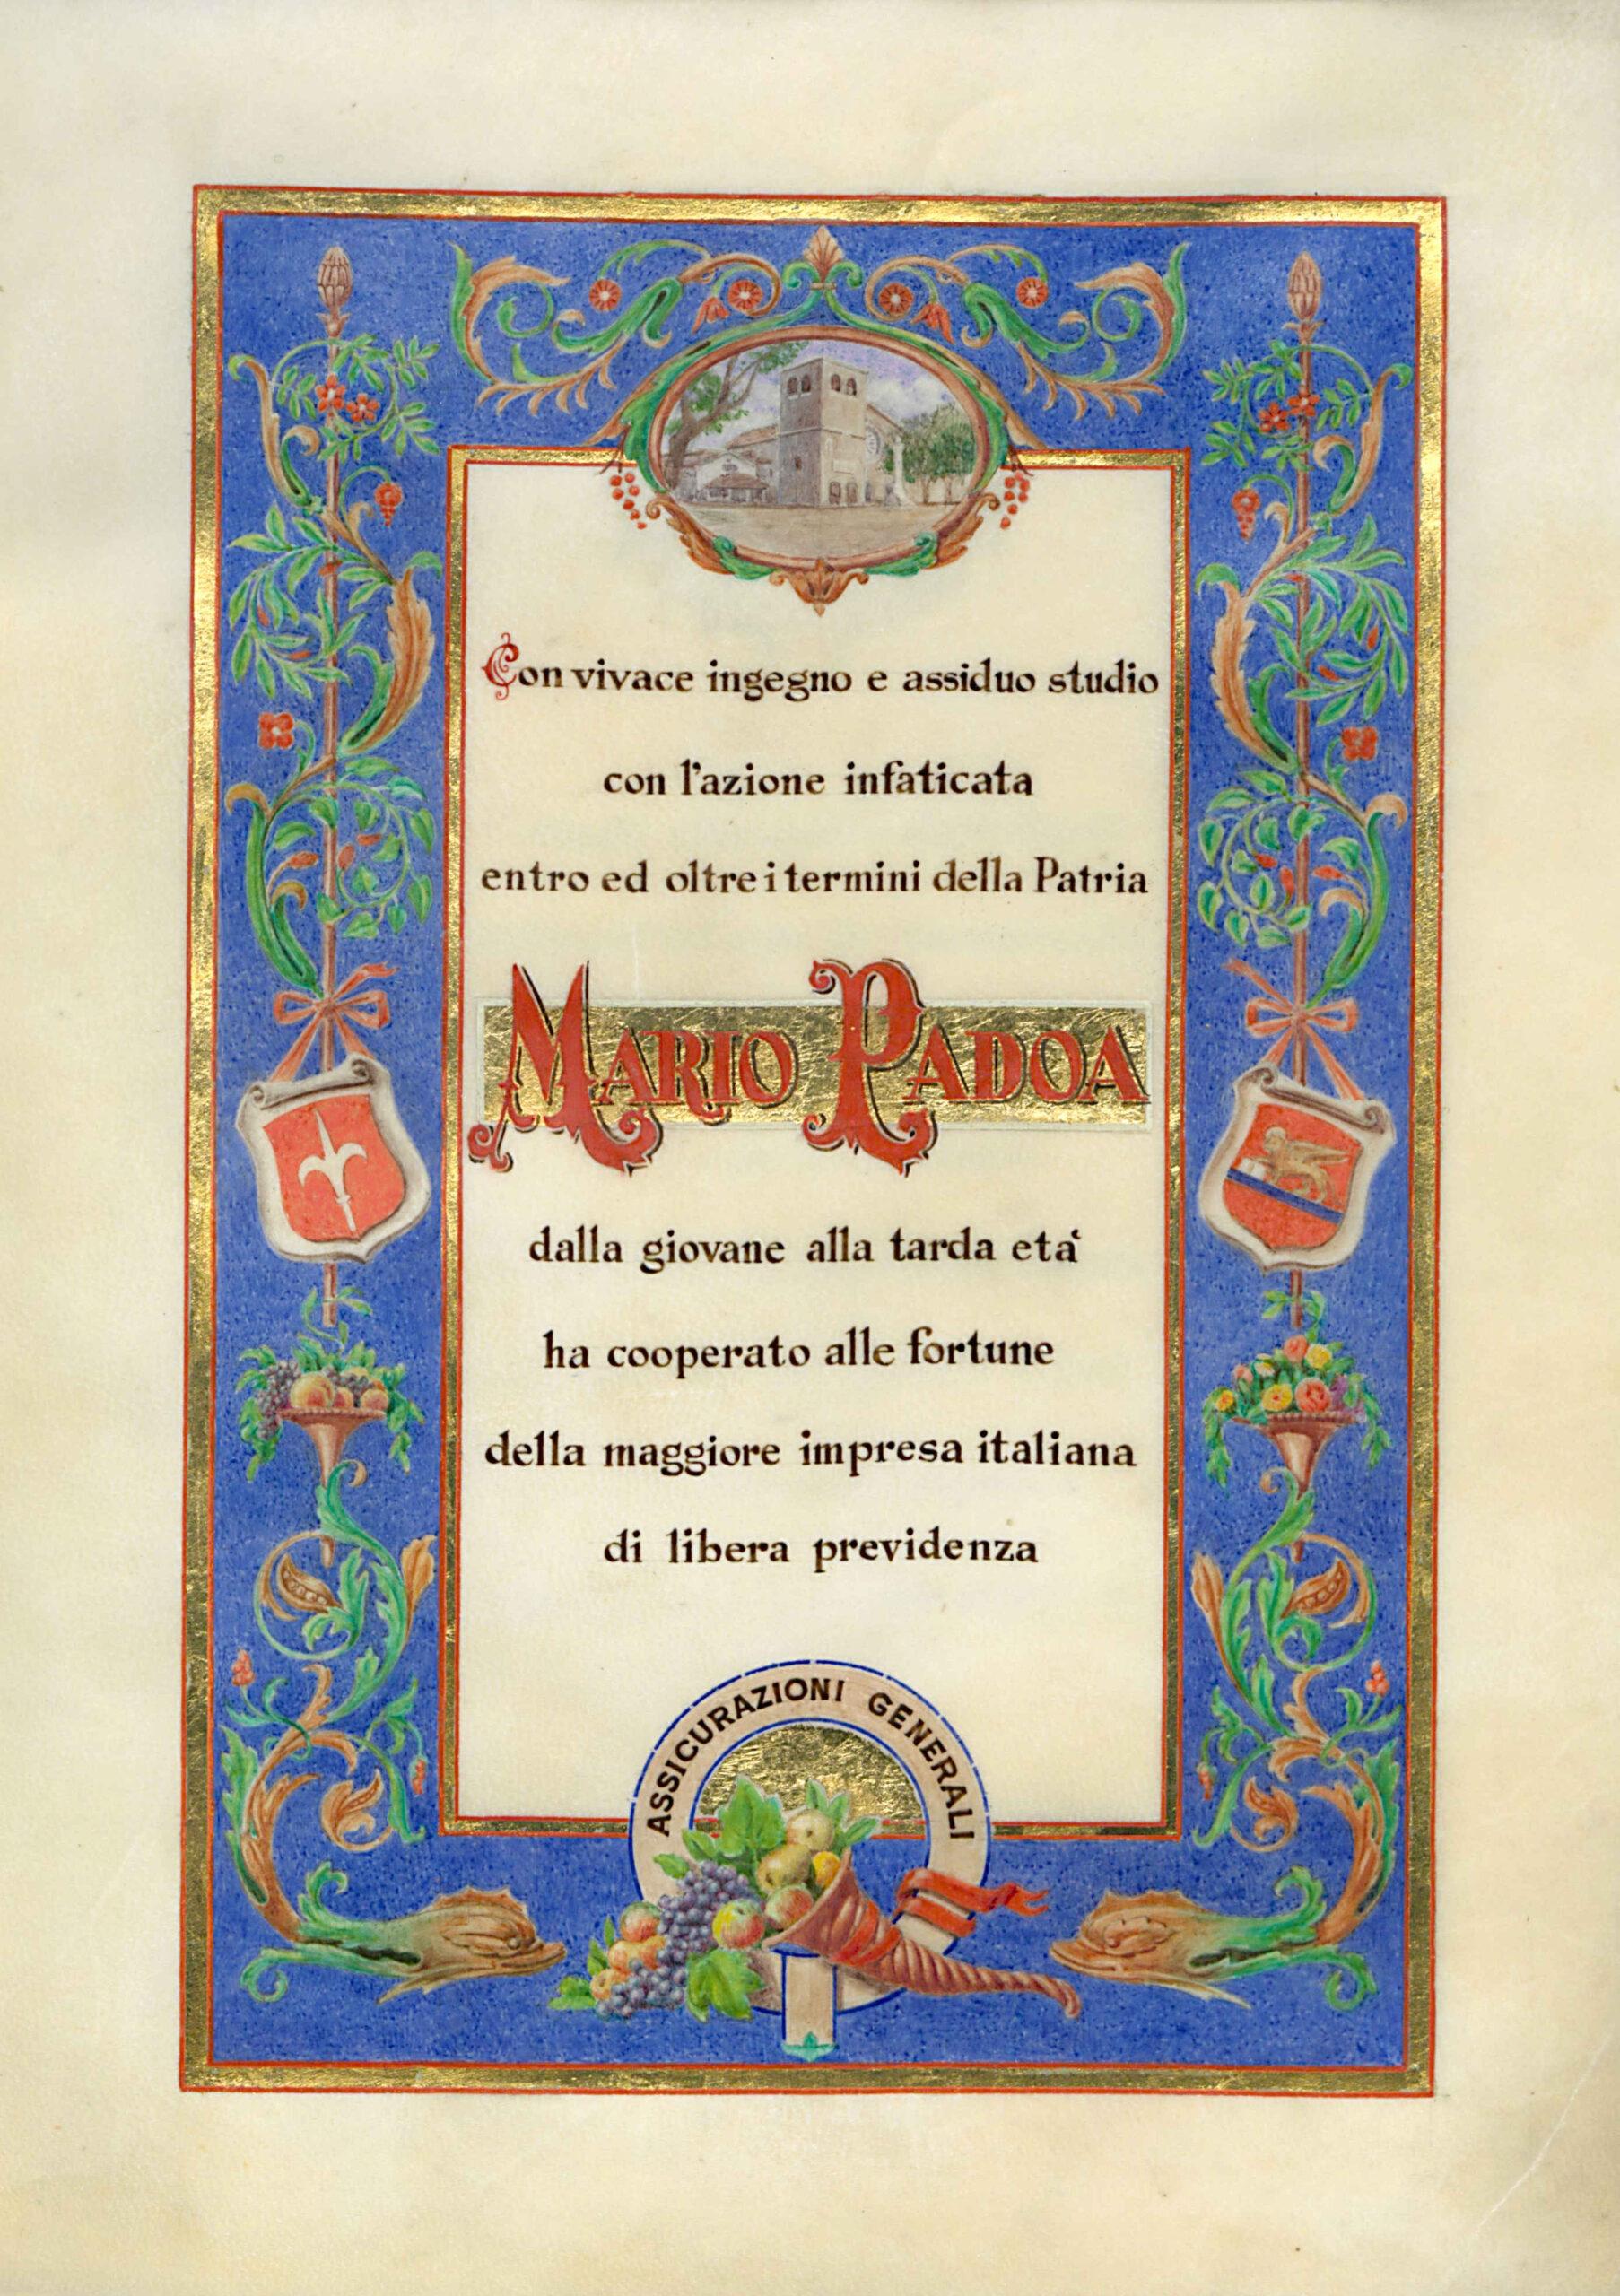 Con vivace ingegno e assiduo studio
con l'azione infaticata
entro ed oltre i termini della Patria
MARIO PADOA
dalla giovane alla tarda età
ha cooperato alle fortune
della maggiore impresa italiana
di libera previdenza
ASSICURAZIONI GENERALI